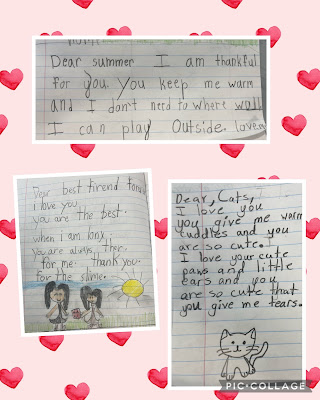 Dear summer I am thankful
for you. You keep me warm
and I don't nerd to where
I can play Outside.
Dear best firend
i love you.
you are the best.
when i am lony.
You are always ther.
for me. thank you.
for the slime.
Dear, Cats,
I love you
you give me warm
cuddles and you
are so cute.
I love your cute
paws and little
ears and you
are so cute that
you give me tears.
PIC•COLLAGE